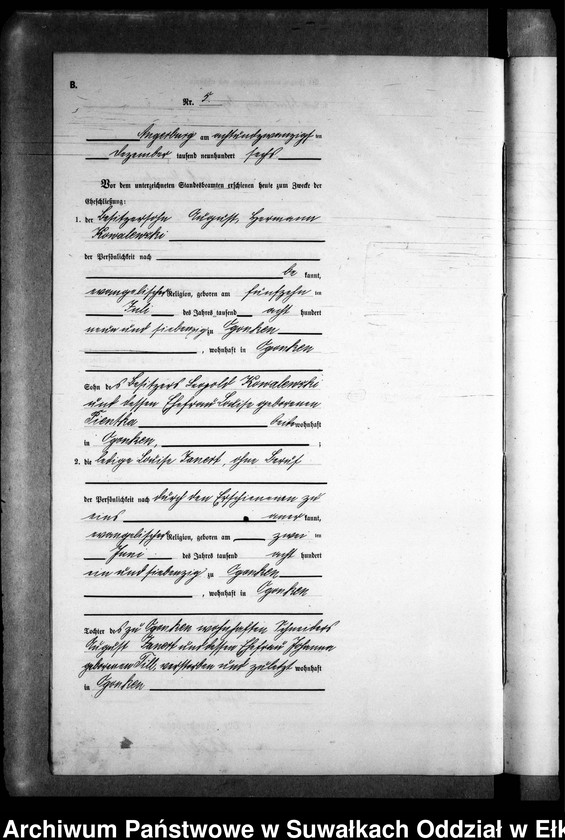 B.
Nr. 5.
Angerburg am achtundzwanzigsten
Dezember tausend neunhundert sechs
Vor dem unterzeichneten Standesbeamten erschienen heute zum Zwecke der
Eheschließung:
1. der Besitzersohn August Hermann
Kowalewski
der Persönlichkeit nach
be kannt,
evangelischer Religion, geboren am fünfzehn ten
Juli des Jahres tausend acht hundert
neun und siebenzig zu Ogonken
, wohnhaft in Ogonken
Sohn des Besitzers Leopold Kowalewski
und dessen Ehefrau Louise geborenen
Pientka beide wohnhaft
in Ogonken, ;
2. die ledige Louise Janert, ohne Beruf
der Persönlichkeit nach durch den Erschienenen zu
eins aner kannt,
evangelischer Religion, geboren am zwei ten
Juni des Jahres tausend acht hundert
ein und siebenzig zu Ogonken
, wohnhaft in Ogonken
Tochter des zu Ogonken wohnhaften Schneiders
August Janert und dessen Ehefrau Johanna
geborenen Till, verstorben und zuletzt wohnhaft
in Ogonken
Archiwum Państwowe w Suwałkach Oddział w Ełk